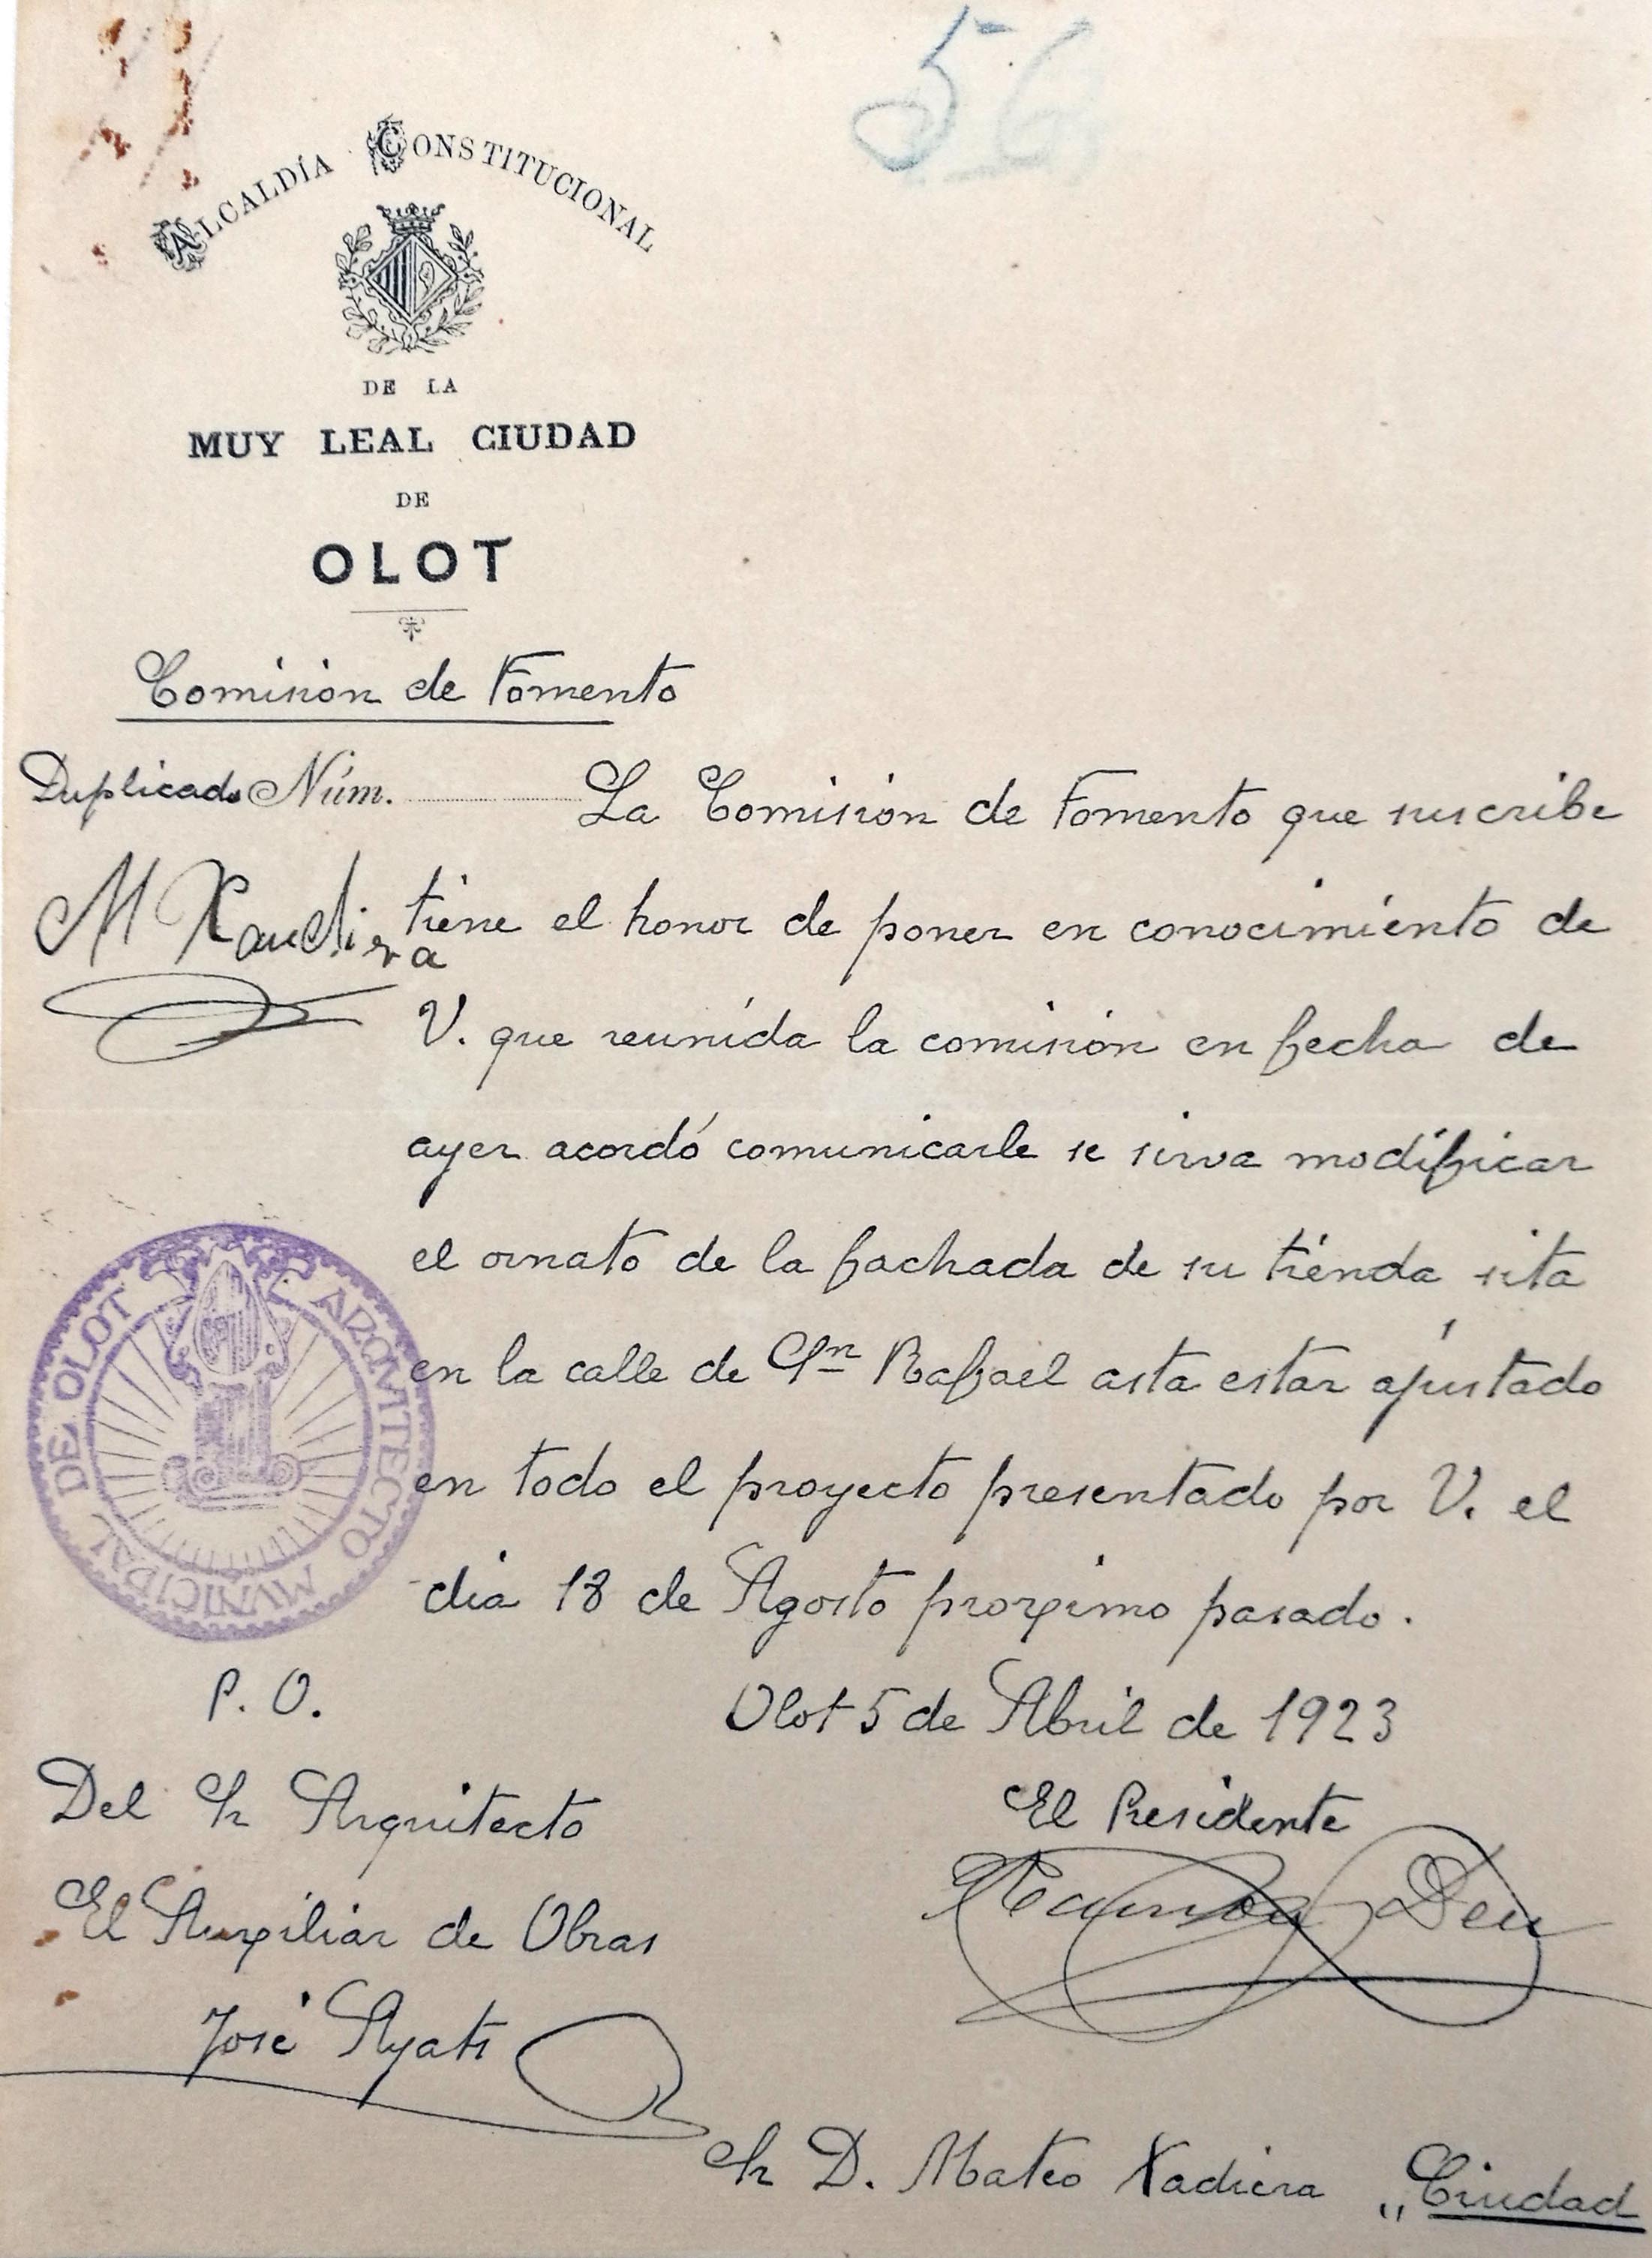 56
ALCALDÍA CONSTITUCIONAL
DE LA
MUY LEAL CIUDAD
DE
OLOT
Comision de Fomento
Duplicado Núm.
La Comision de Fomento que suscribe
M Xaudiera
tiene el honor de poner en conocimiento de
V. que reunida la comisión en fecha de
ayer acordó comunicarle se sirva modificar
el ornato de la fachada de su tienda sita
en la calle de Sn Rafael asta estar ajustado
en todo el proyecto presentado por V. el
dia 18 de Agosto proximo pasado.
ARQVITECTO MVNICIPAL DE OLOT
P. O.
Olot 5 de Abril de 1923
Del Sr Arquitecto
El Presidente
El Auxiliar de Obras
Ramon Deu
José Ayats
Sr D. Mateo Xadiera „Ciudad